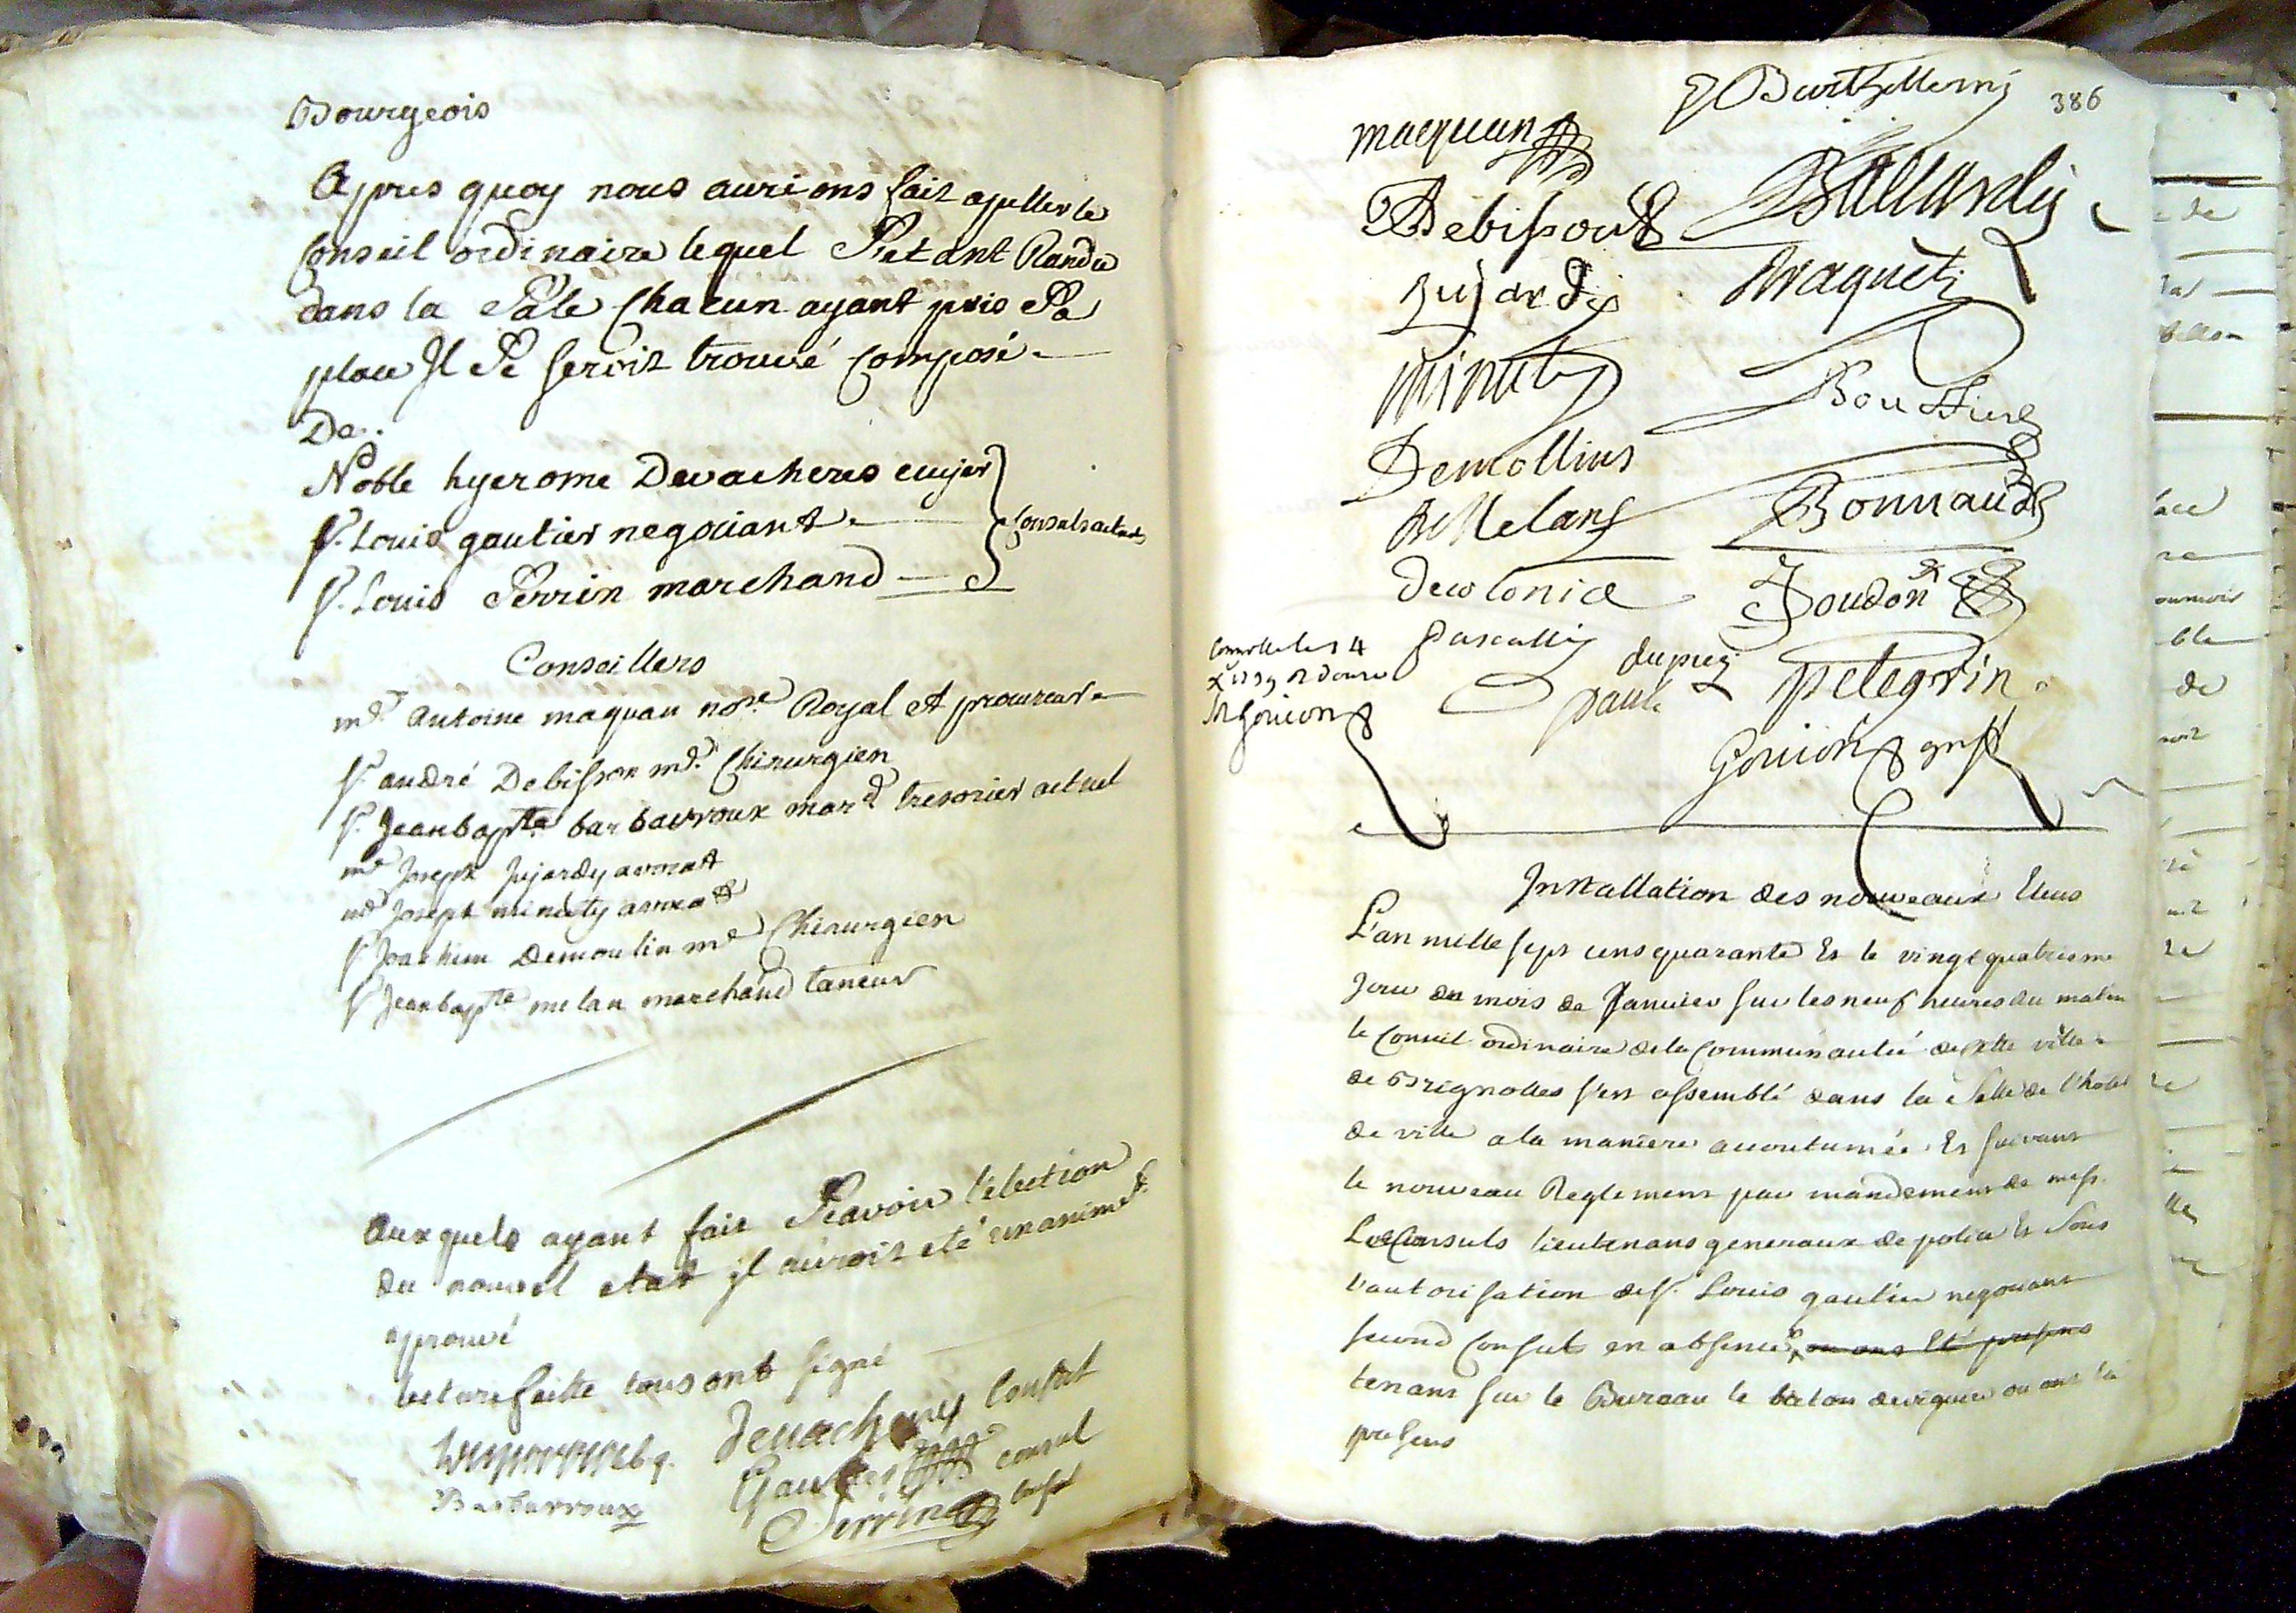 Bourgeois
Apres quoy nous aurions fait apeller le
Conseil ordinaire lequel S'etant Randu
dans la Sale Chacun ayant pris Sa
place Il Se seroit trouvé Composé
De..
Noble hyerome Devacheres ecuyer
Sr. Louis gautier negociant
Consuls actuels
Sr. Louis Perrin marchand
Conseillers
me. Antoine maquan nore. Royal et procureur
Sr. andré Debisson me. Chirurgien
Sr. Jean bapte. barbarroux mard. tresorier actuel
me Joseph Jujardy avocat
me Joseph minuty avocat
Sr Joachim Demoulin me Chirurgien
Sr Jean bapte melan marchand taneur
Auxquels ayant fait Scavoir l'election
du nouvel etat il auroit eté unanimt.
aprouvé
lecture faitte tous ont signé
Devacheres Consul
Gautier consul
Barbarroux
Perrin
386
Barthellemy
maquan
Debisson
Ballardy
Jujardy
Braquety
Minuty
Demollins
Melans
Bonnaud
Decolonia
Joudon
Pascallis
dupuy
paul
pelegrin
Gouion
Gouion
Installation des nouveaux Elus
L'an mille sept cens quarante Et le vingt quatriesme
Jour du mois de Janvier sur les neuf heures du matin
le Conseil ordinaire de la Communauté de cette ville
de Brignolles s'est assemblé dans la Salle de l'hotel
de ville a la maniere accoutumée Et suivant
le nouveau Reglement par mandement de mess.
Les Consuls lieutenans generaux de police Et Sous
l'autorisation de sr. Louis gautier negociant
second Consul en absence ou ont Eté presens
tenant sur le Bureau le baton de viguier ou ont été
presens